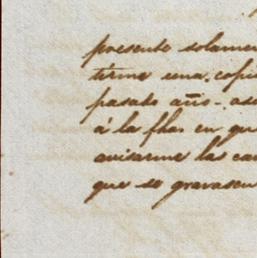 presente solamen
tirme una copia
pasado año- as
á la fha en qu
avisarme las ca
que se gravasen